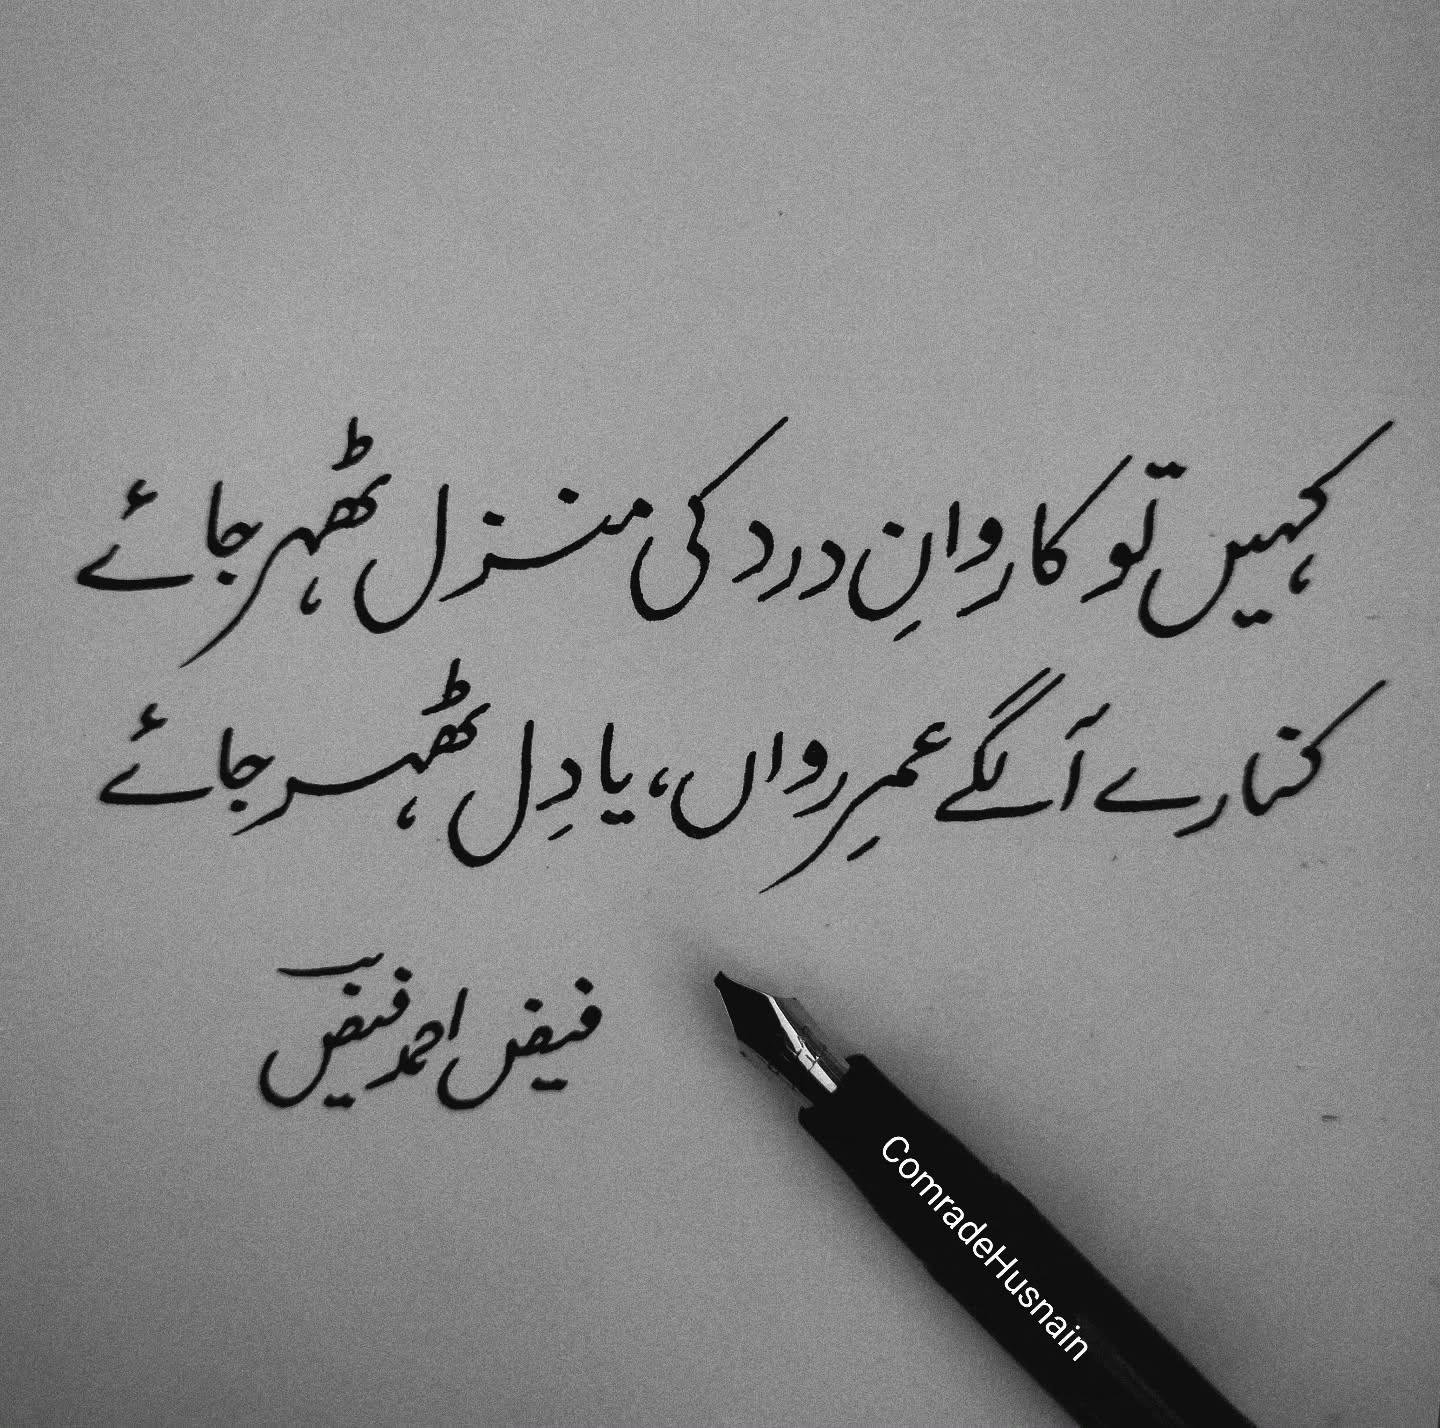 کہیں تو کاروانِ درد کی منزل ٹھہر جائے
کنارے آ لگے عمرِ رواں، یا دِل ٹھہر جائے
فیض احمد فیضؔ
ComradeHusnain